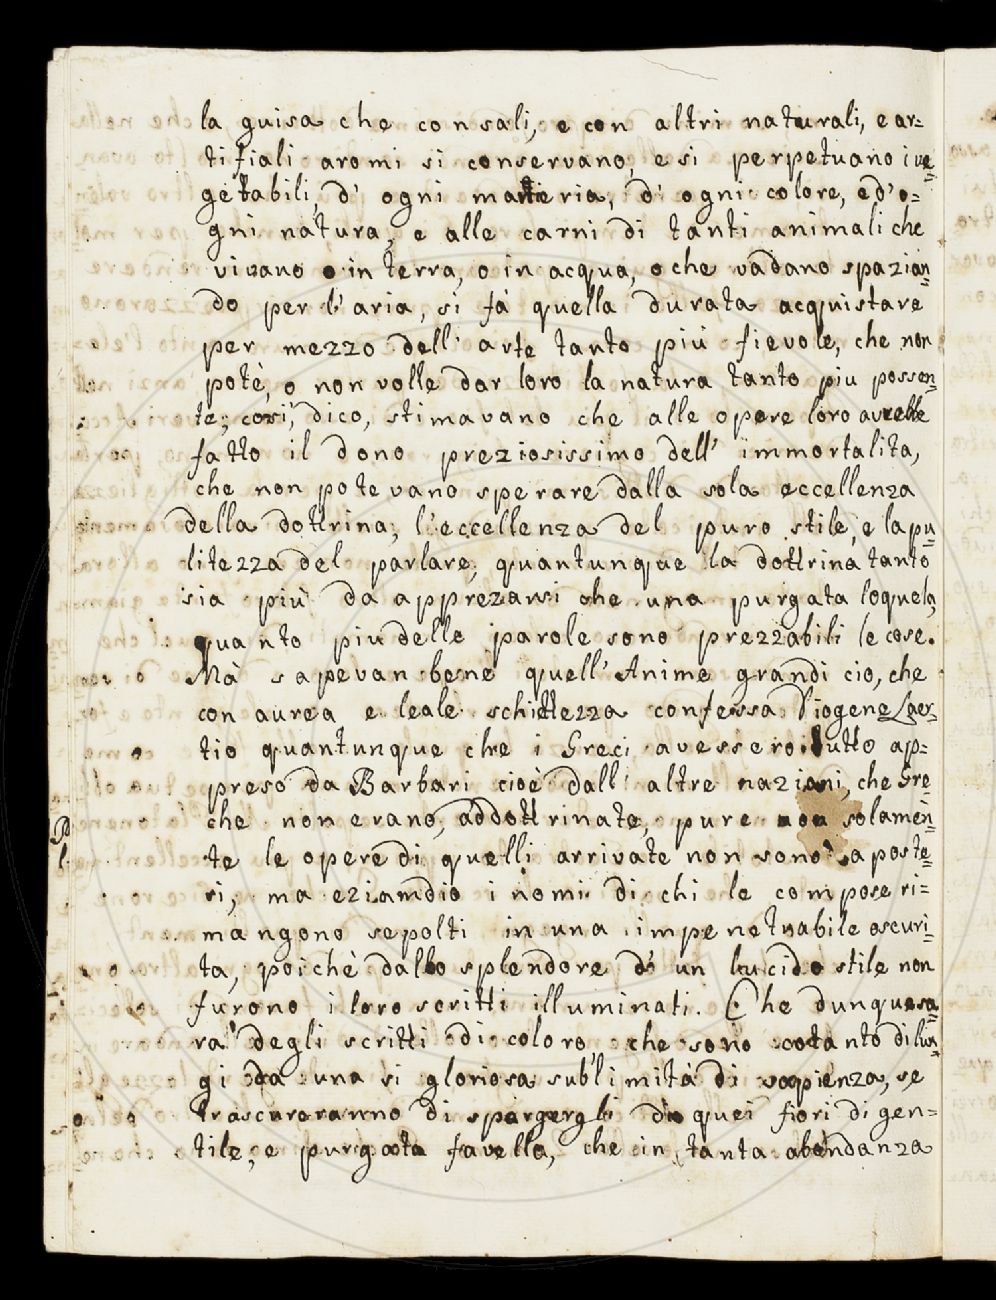 la guisa che con sali, e con altri naturali, e ar=
tifiali aromi si conservano, e si perpetuano i ve=
getabili, d' ogni materia, d' ogni colore, e d' o=
gni natura, e alle carni di tanti animali che
vivano o in terra, o in acqua, o che vadano spazian=
do per l' aria, si fà quella durata acquistare
per mezzo dell' arte tanto più fievole, che non
potè, o non volle dar loro la natura tanto piu possen=
te; così, dico, stimavano che alle opere loro avrebbe
fatto il dono preziosissimo dell' immortalita,
che non potevano sperare dalla sola eccellenza
della dottrina, l'eccellenza del puro stile, e la pu=
litezza del parlare, quantunque la dottrina tanto
sia più da apprezarsi che una purgata loquela,
quanto piu delle parole sono prezzabili le cose.
Mà sapevan bene quell' Anime grandi cio, che
con aurea e leale schiettezza confessa Diogene Laer=
tio quantunque che i Greci avessero tutto ap=
preso da Barbari cioè dall' altre naziani, che Gre=
che non erano, addottrinate, pure non solamèn=
te le opere di quelli arrivate non sono a poste=
ri, ma eziamdio i nomi di chi le compose ri=
mangono sepolti in una impenetrabile oscuri=
ta, poichè dallo splendore d' un lucido stile non
furono i loro scritti illuminati. Che dunque sa=
ra degli scritti di coloro che sono cotanto di lun=
gi da una si gloriosa sublimità di sapienza, se
trascuraranno di spargergli di quei fiori di gen=
tile, e purigata favella, che in tanta abondanza